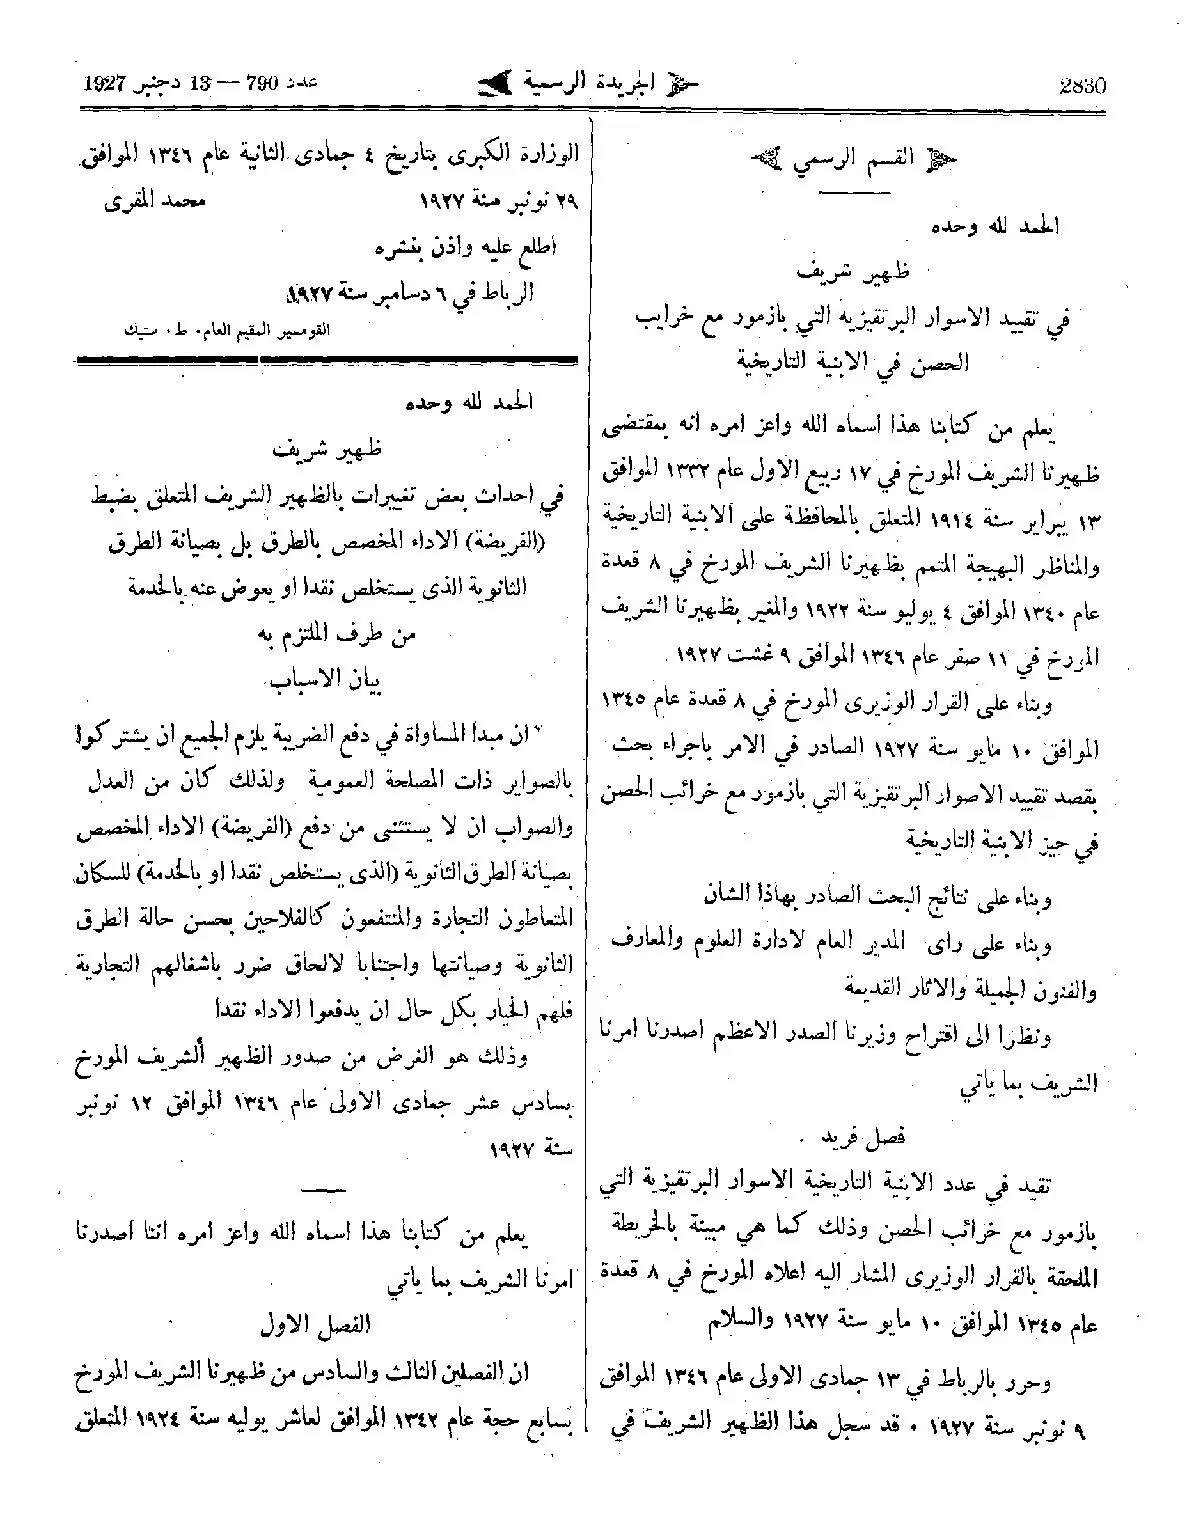 2830
الجريدة الرسمية
عدد 790 — 13 دجنبر 1927
القسم الرسمي
الحمد لله وحده
ظهير شريف
في تقييد الاسوار البرتقيزية التي بازمور مع خرايب
الحصن في الابنية التاريخية
يعلم من كتابنا هذا اسماه الله واعز امره انه بمقتضى
ظهيرنا الشريف المورخ في ١٧ ربيع الاول عام ١٣٣٢ الموافق
١٣ يبراير سنة ١٩١٤ المتعلق بالمحافظة على الابنية التاريخية
والمناظر البهيجة المتمم بظهيرنا الشريف المورخ في ٨ قعدة
عام ١٣٤٠ الموافق ٤ يوليو سنة ١٩٢٢ والمغير بظهيرنا الشريف
المورخ في ١١ صفر عام ١٣٤٦ الموافق ٩ غشت ١٩٢٧
وبناء على القرار الوزيرى المورخ في ٨ قعدة عام ١٣٤٥
الموافق ١٠ مايو سنة ١٩٢٧ الصادر في الامر باجراء بحث
بقصد تقييد الاصوار البرتقيزية التي بازمور مع خرائب الحصن
في حيز الابنية التاريخية
وبناء على نتائج البحث الصادر بهاذا الشان
وبناء على راى المدير العام لادارة العلوم والمعارف
والفنون الجميلة والاثار القديمة
ونظرا الى اقتراح وزيرنا الصدر الاعظم اصدرنا امرنا
الشريف بما ياتي
فصل فريد .
تقيد في عدد الابنية التاريخية الاسوار البرتقيزية التي
بازمور مع خرائب الحصن وذلك كما هي مبينة بالخريطة
الملحقة بالقرار الوزيرى المشار اليه اعلاه المورخ في ٨ قعدة
عام ١٣٤٥ الموافق ١٠ مايو سنة ١٩٢٧ والسلام
وحرر بالرباط في ١٣ جمادى الاولى عام ١٣٤٦ الموافق
٩ نونبر سنة ١٩٢٧ . قد سجل هذا الظهير الشريف في
الوزارة الكبرى بتاريخ ٤ جمادى الثانية عام ١٣٤٦ الموافق
٢٩ نونبر سنة ١٩٢٧ محمد المقرى
اطلع عليه واذن بنشره
الرباط في ٦ دسامبر سنة ١٩٢٧
القومسير المقيم العام . ط . ستيك
الحمد لله وحده
ظهير شريف
في احداث بعض تغييرات بالظهير الشريف المتعلق بضبط
(الفريضة) الاداء المخصص بالطرق بل بصيانة الطرق
الثانوية الذى يستخلص نقدا او يعوض عنه بالخدمة
من طرف الملتزم به
بيان الاسباب
ان مبدا المساواة في دفع الضريبة يلزم الجميع ان يشتركوا
بالصواير ذات المصلحة العمومية ولذلك كان من العدل
والصواب ان لا يستثنى من دفع (الفريضة) الاداء المخصص
بصيانة الطرق الثانوية (الذى يستخلص نقدا او بالخدمة) للسكان
المتعاطون التجارة والمنتفعون كالفلاحين بحسن حالة الطرق
الثانوية وصيانتها واجتنابا لالحاق ضرر باشغالهم التجارية
فلهم الخيار بكل حال ان يدفعوا الاداء نقدا
وذلك هو الغرض من صدور الظهير الشريف المورخ
بسادس عشر جمادى الاولى عام ١٣٤٦ الموافق ١٢ نونبر
سنة ١٩٢٧
يعلم من كتابنا هذا اسماه الله واعز امره اننا اصدرنا
امرنا الشريف بما ياتي
الفصل الاول
ان الفصلين الثالث والسادس من ظهيرنا الشريف المورخ
بسابع حجة عام ١٣٤٢ الموافق لعاشر يوليه سنة ١٩٢٤ المتعلق